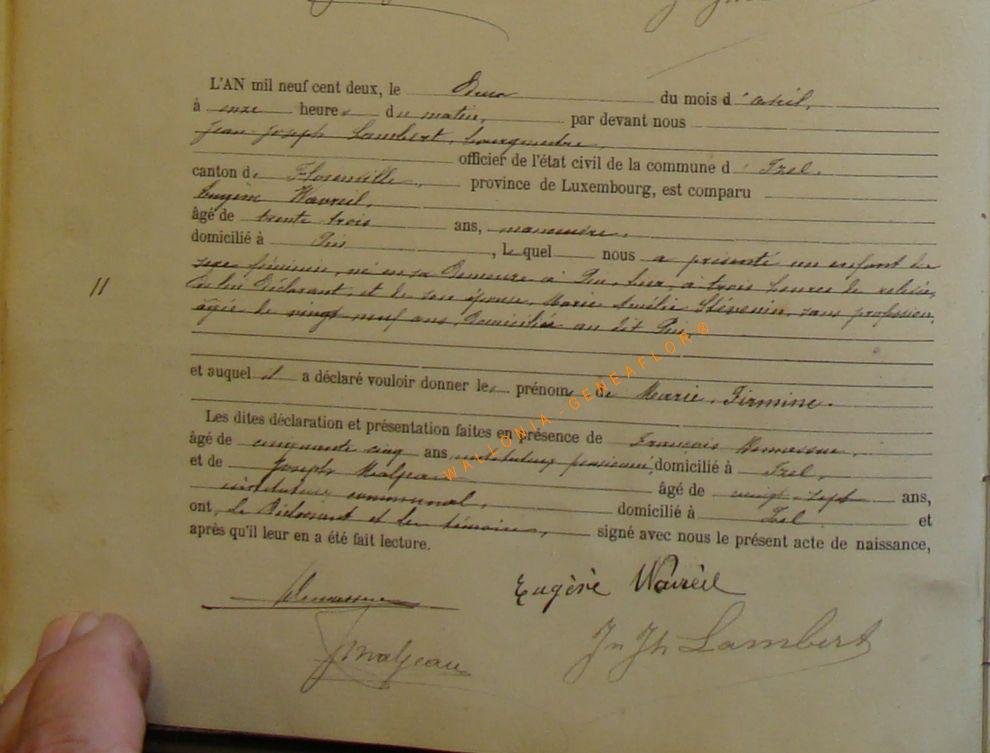 L'AN mil neuf cent deux, le Deux du mois d'avril,
à onze heures du matin, par devant nous
Jean Joseph Lambert, bourgmestre,
officier de l'état civil de la commune d'Izel,
canton de Florenville, province de Luxembourg, est comparu
Eugène Wavreil,
âgé de trente trois ans, manoeuvre,
domicilié à Pin, lequel nous a présenté un enfant du
sexe féminin, né en sa Demeure à Pin, hier, à trois heures de relevée,
de lui Déclarant, et de son épouse, Marie Amélie Stévenin, sans profession,
âgée de vingt neuf ans, Domiciliée au dit Pin.
et auquel il a déclaré vouloir donner les prénoms de Marie, Firmine.
Les dites déclaration et présentation faites en présence de François
âgé de cinquante cinq ans, instituteur pensionné, domicilié à Izel,
et de Joseph Maljean âgé de vingt-sept ans,
instituteur communal, domicilié à Izel et
ont, le Déclarant et les témoins, signé avec nous le présent acte de naissance,
après qu'il leur en a été fait lecture.
Eugène Wavreil
J Maljean
Jn Jh Lambert
WALLONIA-GENEAFLOR®